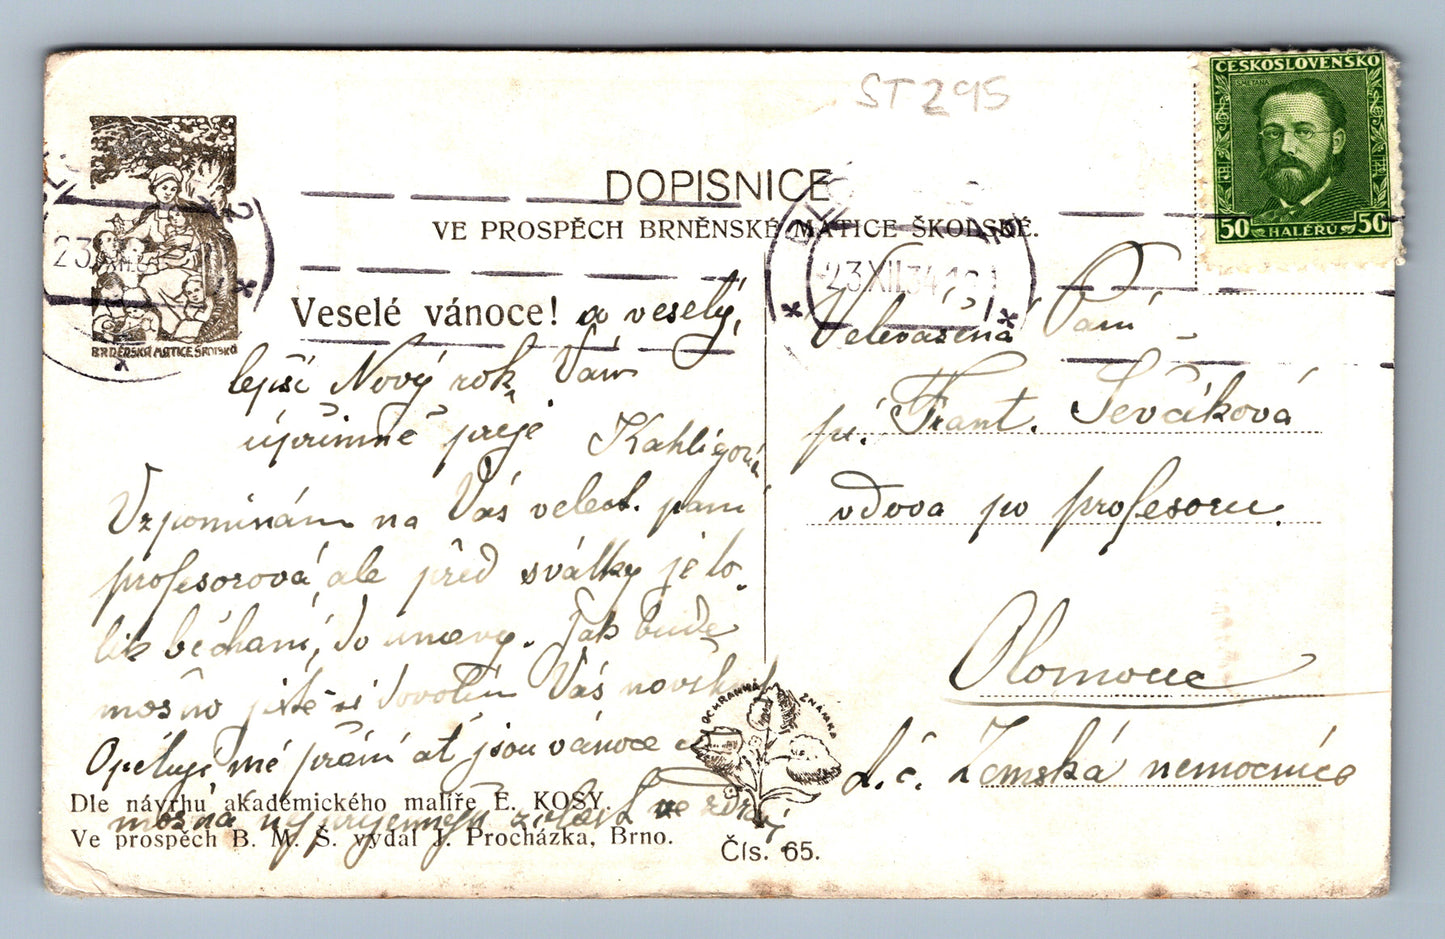 ST 295
ČESKOSLOVENSKO
SMETANA
50 HALÉRŮ 50
DOPISNICE
VE PROSPĚCH BRNĚNSKÉ MATICE ŠKOLSKÉ.
BRNĚNSKÁ MATICE ŠKOLSKÁ
23 XII 34
Veselé vánoce! a veselý,
lepší Nový rok Vám
úpřimně preje Kahligová
Vzpomínám na Vás velect. pani
profesorová, ale před svátky je to-
lik běhaní, do únavy. Jak bude
možno jistě si dovolím Vás
Opětuji mé přání ať jsou vánoce
možná nejpříjemnější ve zdraí
Velevážená Paní
pí. Frant. Ševčíková
vdova po profesoru.
Olomouc
L.č. Zemská nemocnice
OCHRANNÁ ZNÁMKA
Dle návrhu akademického malíře E. KOSY.
Ve prospěch B. M. Š. vydal J. Procházka, Brno.
Čís. 65.